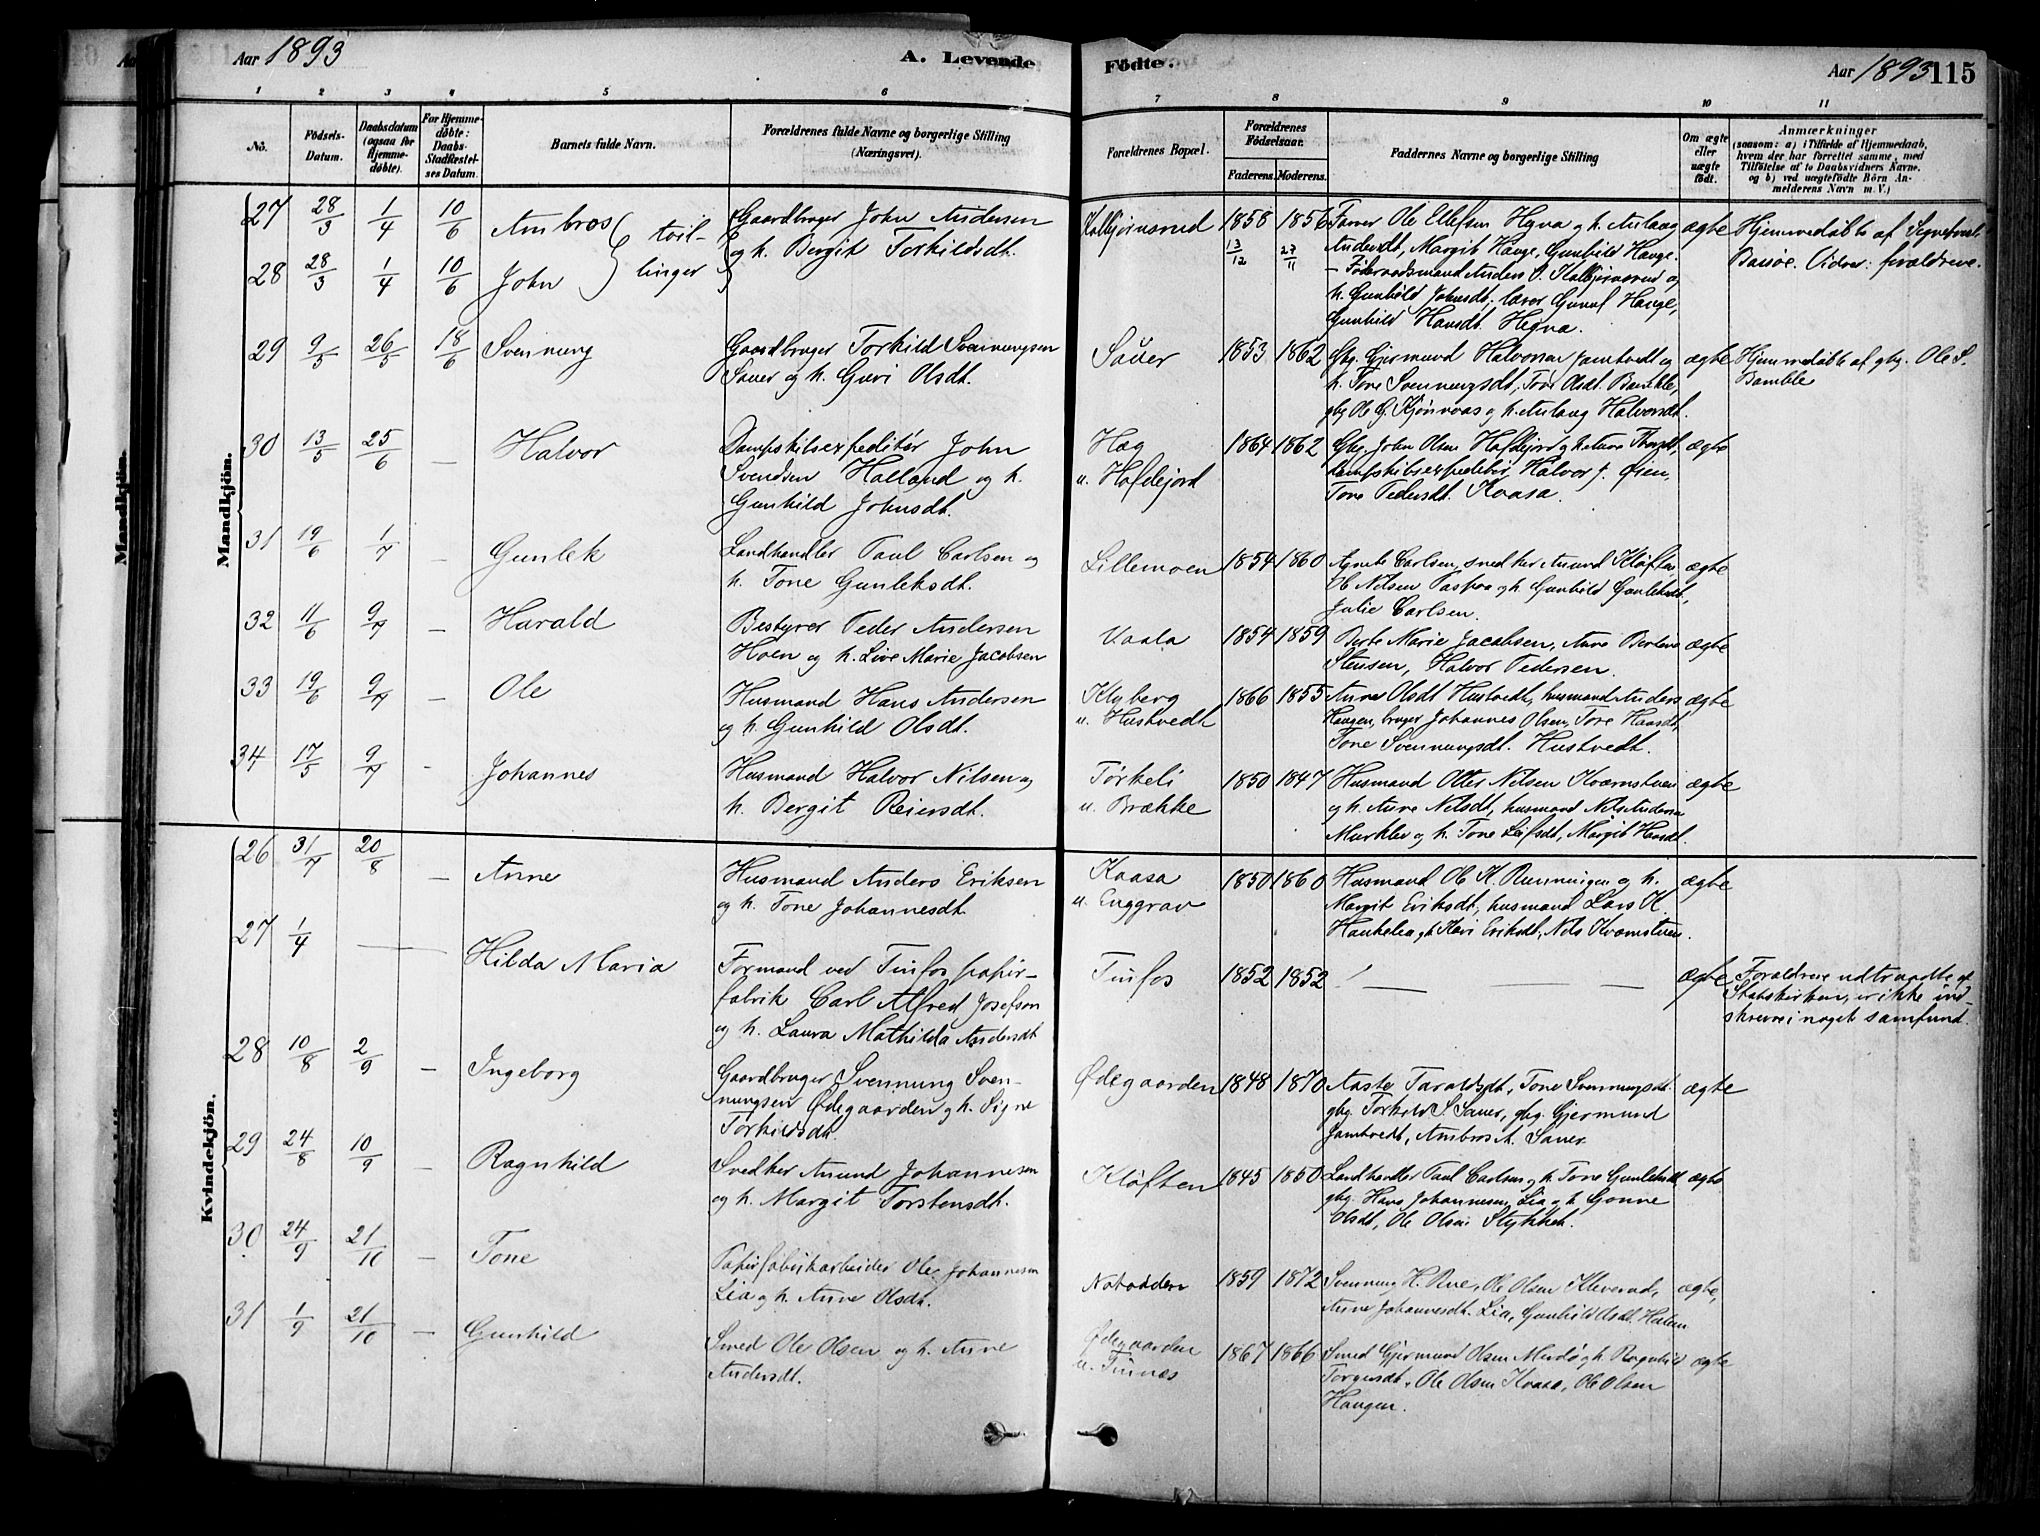 Aar 1893 A. Levende Fødte. Aar 1893 115
1 2 3 4 5 6 7 8 9 10 11
No. Fødsels-Datum. Daabsdatum (ogsaa for Hjemmedøbte). For Hjemmedøbte: Daabs-Stadfæstelses Datum. Barnets fulde Navn. Forældrenes fulde Navne og borgerlige Stilling (Næringsvei). Forældrenes Bopæl. Forældrenes Fødselsaar. Faderens. Moderens. Faddernes Navne og borgerlige Stilling Om ægte eller uægte født. Anmærkninger (saasom: a) i Tilfælde af Hjemmedaab, hvem der har forrettet samme, med Tilføielse af to Daabsvidners Navne. og b) ved uægtefødte Børn Anmelderens Navn m. V.)
Mandkjön.
27 28/3 1/4 10/6 Ambros } tvil-
Gaardbruger John Andersen
og h. Bergit Torkildsdt.
Kolbjørnsrud 1858 13/12 1856 27/11
Farver Ole Ellefsen Hegna og h. Aslaug
Andersdt, Margit Hauge, Gunhild Hauge.
– Føderaadsmand Anders O. Kolbjørnsrud og
h. Gunhild Johnsdt; lærer Hauge,
Gunhild Hansdt. Hegna.
ægte Hjemmedøbte af
Vidner: forældrene.
28 28/3 1/4 10/6 John } linger
29 9/5 26/5 18/6 Svenning
Gaardbruger Torkild Svenningsen
Sauer og h. Guri Olsdt.
Sauer 1853 1862
Gbg. Gjermund Halvorsen Jamtvedt og
h. Tone Svenningsdt, Tone Olsdt. Bamble,
gbg Ole G. og h. Aslaug Halvorsdt.
ægte Hjemmedøbt af gbg. Ole S.
Bamble
30 13/5 25/6 — Halvor
Dampskibsexpeditør John
Svendsen Holland og h.
Gunhild Johnsdt.
Hæg
u. Hafdejord 1864 1862
Gbg. John Olsen Hafdejord og h. Anne
dampskibsexpeditør Halvor J. Øisen,
Tone Pedersdt. Kaasa.
ægte
31 19/6 1/7 — Gunlek
Landhandler Paul Carlsen og
h. Tone Gunleksdt.
Lillemoen 1854 1860
Agnete Carlsen, snedker Asund Kløften
Ole Nilsen og h. Gunhild Gunleksdt,
Julie Carlsen.
ægte
32 11/6 9/7 — Harald
Bestyrer Peder Andersen
Hoen og h. Live Marie Jacobsen
Vaala 1854 1859
Berte Marie Jacobsen, Anne Bertine
Stensen, Halvor Pedersen.
ægte
33 19/6 9/7 — Ole
Husmand Hans Andersen
og h. Gunhild Olsdt.
Klyberg
u. Hustvedt 1866 1855
Anne Olsdt Hustvedt, husmand Anders
Haugen, bruger Johannes Olsen, Tone Hansdt,
Tone Svenningsdt. Hustvedt.
ægte
34 17/5 9/7 - Johannes
Husmand Halvor Nilsen og
h. Bergit Reiersdt.
Tørkeli
u. Brække 1850 1847
Husmand Otter Nilsen Kvarnstuen
og h. Anne Nilsdt, husmand Nils Anders
og h. Tone Leifsdt, Margit Hansdt.
ægte
Kvindekjön.
26 31/7 20/8 — Anne
Husmand Anders Eriksen
og h. Tone Johannesdt.
Kaasa
u. Enggrav 1850 1860
Husmand Ole K. Runningen og h.
Margit Eriksdt, husmand Lars K.
Haukelia og h. Kari Eriksdt, Nils Kvarnstuen.
ægte
27 1/4 — Hilda Maria
Formand ved Tinfos papir-
fabrik Carl Alfred Josefson
og h. Laura Mathilda Andersdt
Tinfos 1852 1852 — — —
ægte Forældrene udtraadte af
Statskirken, er ikke ind-
skrevne i noget samfund.
28 10/8 2/9 — Ingeborg
Gaardbruger Svennung Sven-
nungsen Ødegaarden og h. Signe
Torkildsdt.
Ødegaarden 1848 1870
Aaste Taraldsdt, Tone Svennungsdt.
gbg. Torkild S. Sauer, gbg. Gjermund
Jamtvedt, Ambros A. Sauer.
ægte
29 24/8 10/9 — Ragnhild
Snedker Asund Johannesen
og h. Margit Torstensdt.
Kløften 1845 1850
Landhandler Paul Carlsen og h. Tone Gunleksdt
gbg. Hans Johannesen Lia og h. Gonne
Olsdt, Ole Olsen Stykket.
ægte
30 24/9 21/10 — Tone
Papirfabrikarbeider Ole Johannesen
Lia og h. Anne Olsdt.
Notodden 1859 1872
Svennung H. Rue, Ole Olsen Kleverud,
Anne Johannesdt. Lia, Gunhild Olsdt.
ægte,
31 1/9 21/10 — Gunhild
Smed Ole Olsen og h. Anne
Andersdt.
Ødegaarden
u. Tinnes 1867 1866
Smed Gjermund Olsen og h. Ragnhild
Torgersdt, Ole Olsen Kaasa, Ole Olsen
Haugen.
ægte